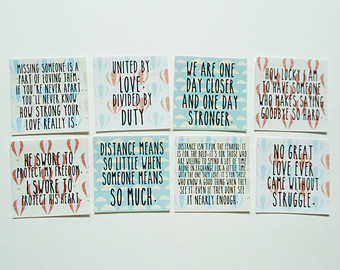 MISSING SOMEONE IS A
PART OF LOVING THEM.
IF YOU'RE NEVER APART
YOU'LL NEVER KNOW
HOW STRONG YOUR
LOVE REALLY IS.
UNITED BY
LOVE;
DIVIDED BY
DUTY
WE ARE ONE
DAY CLOSER
AND ONE DAY
STRONGER.
HOW LUCKY I AM
TO HAVE SOMEONE
WHO MAKES SAYING
GOODBYE SO HARD
HE SWORE TO
PROTECT MY FREEDOM.
I SWORE TO
PROTECT HIS HEART.
DISTANCE MEANS
SO LITTLE WHEN
SOMEONE MEANS
SO MUCH.
DISTANCE ISN'T FOR THE FEARFUL, IT
IS FOR THE BOLD. IT'S FOR THOSE WHO
ARE WILLING TO SPEND A LOT OF TIME
ALONE IN EXCHANGE FOR A LITTLE TIME
WITH THE ONE THEY LOVE. IT'S FOR THOSE
WHO KNOW A GOOD THING WHEN THEY
SEE IT, EVEN IF THEY DON'T SEE
IT NEARLY ENOUGH.
NO GREAT
LOVE EVER
CAME WITHOUT
STRUGGLE.